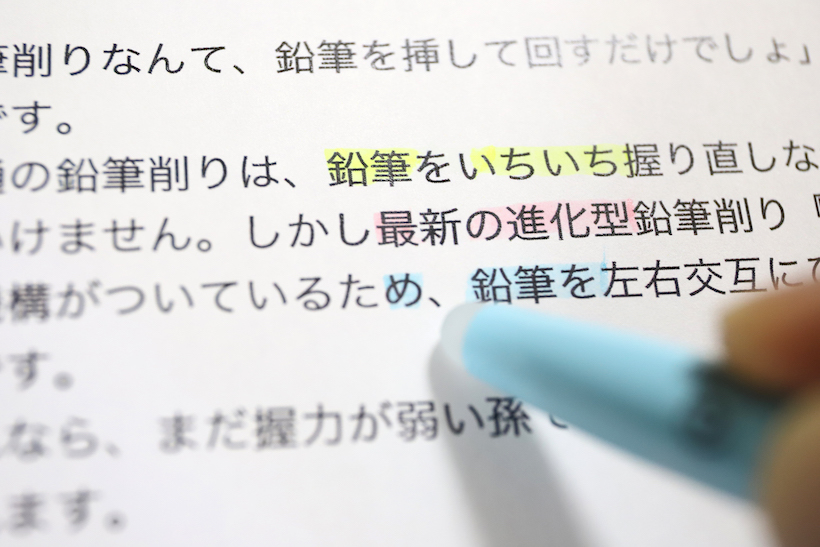 筆削りなんて、鉛筆を挿して回すだけでしょ」
です。
の鉛筆削りは、鉛筆をいちいち握り直しな
いけません。しかし最新の進化型鉛筆削り「
機構がついているため、鉛筆を左右交互に
です。
なら、まだ握力が弱い孫で
えます。